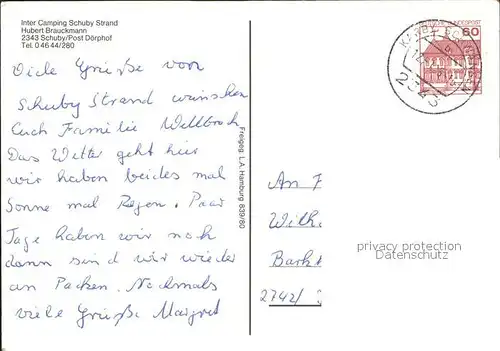 Inter Camping Schuby Strand
Hubert Brauckmann
2343 Schuby/Post Dörphof
Tel. 0 46 44/280
Viele Grüße von
Schuby Strand wünschen
Euch Familie Wellbrock
Das Wetter geht hier
wir haben beides mal
Sonne mal Regen. Paar
Tage haben wir noch
dann sind wir wieder
am Packen. Nochmals
viele Grüße Margret
Freigeg. L.A. Hamburg 839/80
BUNDESPOST
60
2343
An F
Wilh
Bark
2742/
privacy protection
Datenschutz